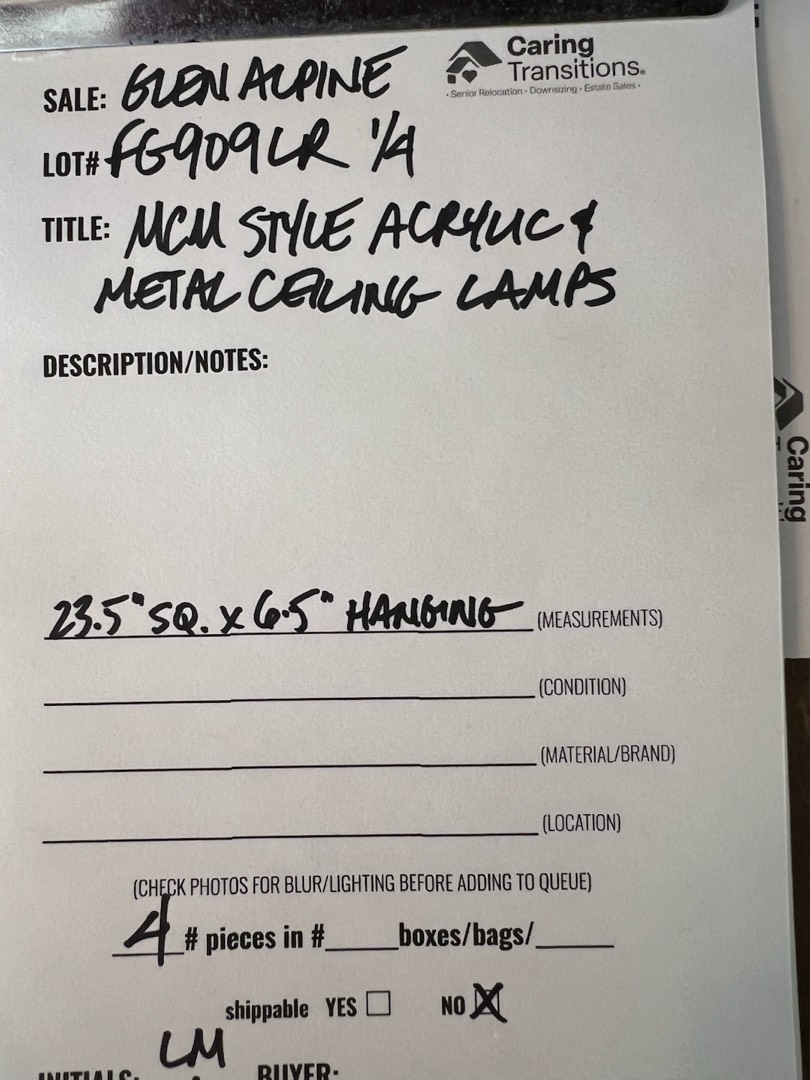 Caring
Transitions®
· Senior Relocation · Downsizing · Estate Sales ·
SALE: GLEN ALPINE
LOT# FG909LR 1/4
TITLE: MCM STYLE ACRYLIC &
METAL CEILING LAMPS
DESCRIPTION/NOTES:
23.5" SQ. x 6.5" HANGING (MEASUREMENTS)
(CONDITION)
(MATERIAL/BRAND)
(LOCATION)
(CHECK PHOTOS FOR BLUR/LIGHTING BEFORE ADDING TO QUEUE)
4 # pieces in #_____boxes/bags/_____
shippable YES ☐ NO ☒
INITIALS: LM BUYER:
Caring